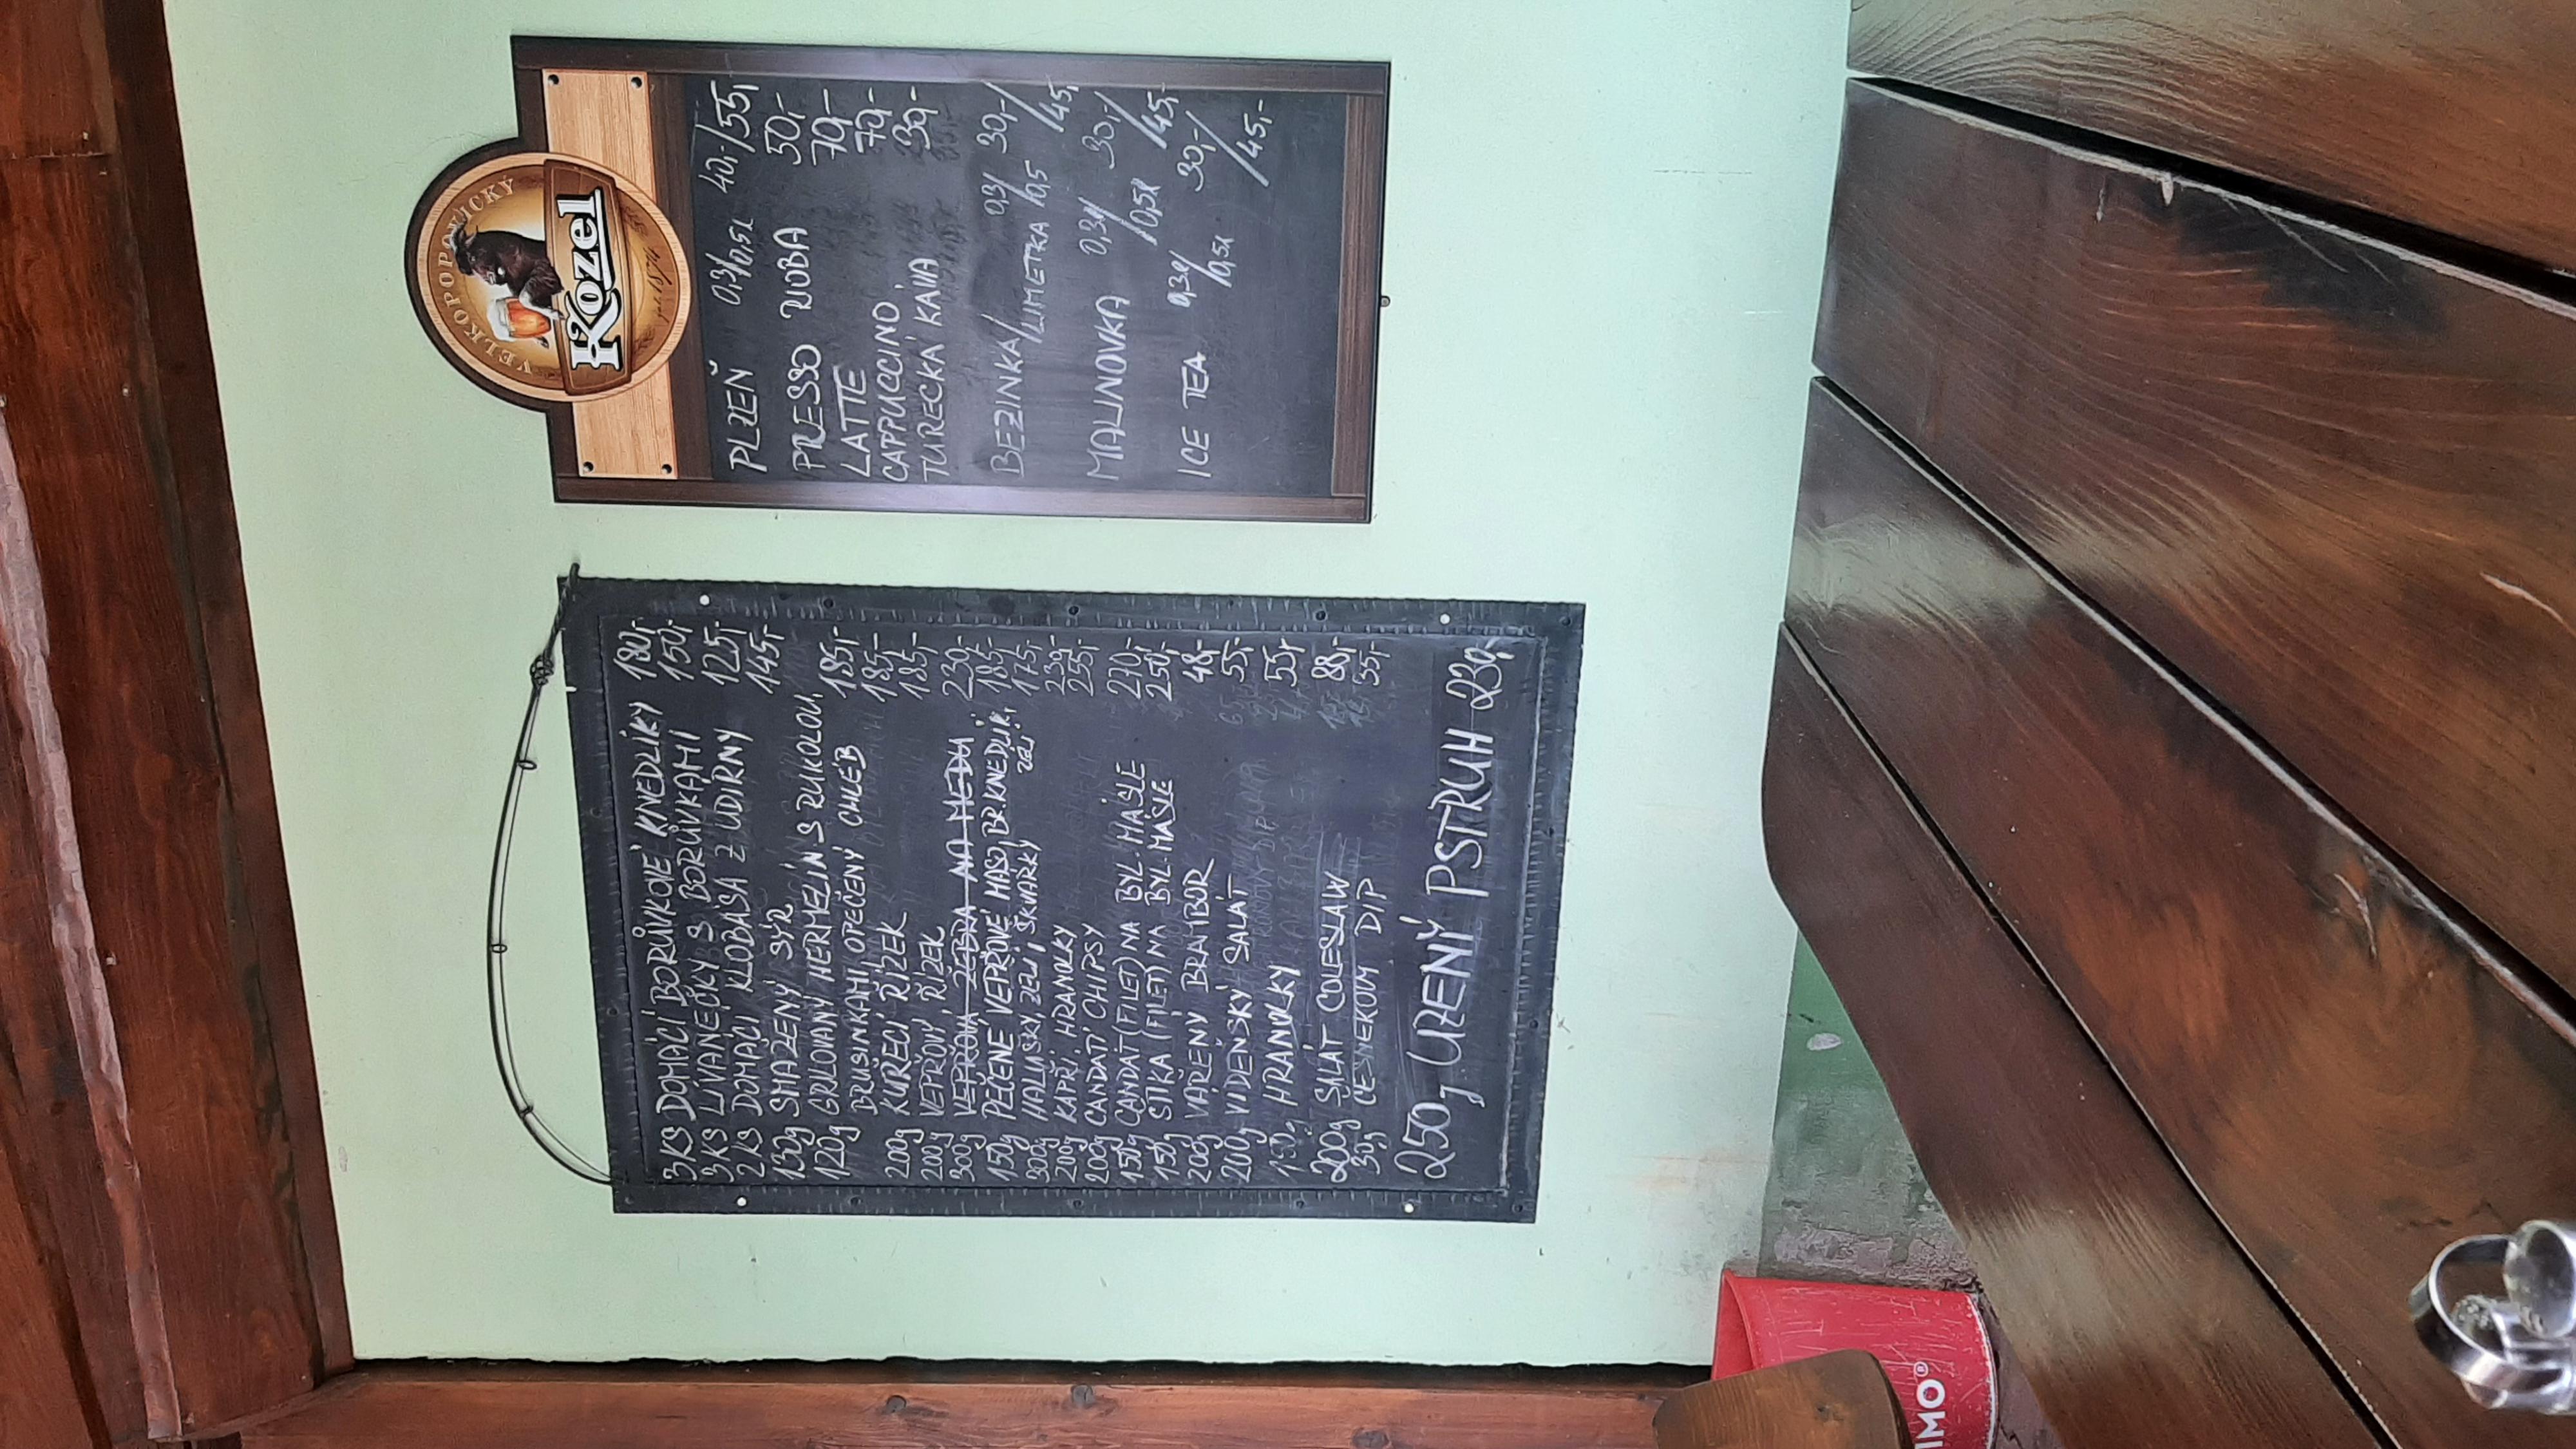 3 KS DOMÁCÍ BORŮVKOVÉ KNEDLÍKY 180,-
3 KS LÍVANEČKY S BORŮVKAMI 150,-
2 KS DOMÁCÍ KLOBASA Z UDÍRNY 125,-
130g SMAŽENÝ SÝR 145,-
120g GRILOVANÝ HERMELÍN S RUKOLOU,
BRUSINKAMI OPEČENÝ CHLEB 185,-
200g KUŘECÍ ŘÍZEK 185,-
200g VEPŘOVÝ ŘÍZEK 185,-
300g VEPŘOVÁ ŽEBRA NA MEDU 230,-
150g PEČENÉ VEPŘOVÉ MASO, BR.KNEDLÍK, 185,-
ZELÍ
300g HALUŠKY, ZELÍ, ŠKVARKY 175,-
200g KAPŘÍ HRANOLKY 230,-
200g CANDÁTÍ CHIPSY 255,-
150g CANDÁT (FILET) NA BYL. MÁSLE 270,-
150g ŠTIKA (FILET) NA BYL. MÁSLE 250,-
200g VAŘENÝ BRAMBOR 48,-
200g VIDEŇSKÝ SALÁT 55,-
150g HRANOLKY 55,-
200g SALÁT COLESLAW 88,-
30g ČESNEKOVÝ DIP 35,-
250g UZENÝ PSTRUH 230,-
VELKOPOPOVICKÝ
Kozel
PLZEŇ 0,3/0,5l 40,-/55,-
PRESSO RIOBA 50,-
LATTE 70,-
CAPPUCCINO 70,-
TURECKÁ KÁVA 30,-
BEZINKA/ 0,3/ 30,-/
LIMETKA 0,5 45,-
MALINOVKA 0,3l/ 30,-/
0,5l 45,-
ICE TEA 0,3l/ 30,-/
0,5l 45,-
IMO®